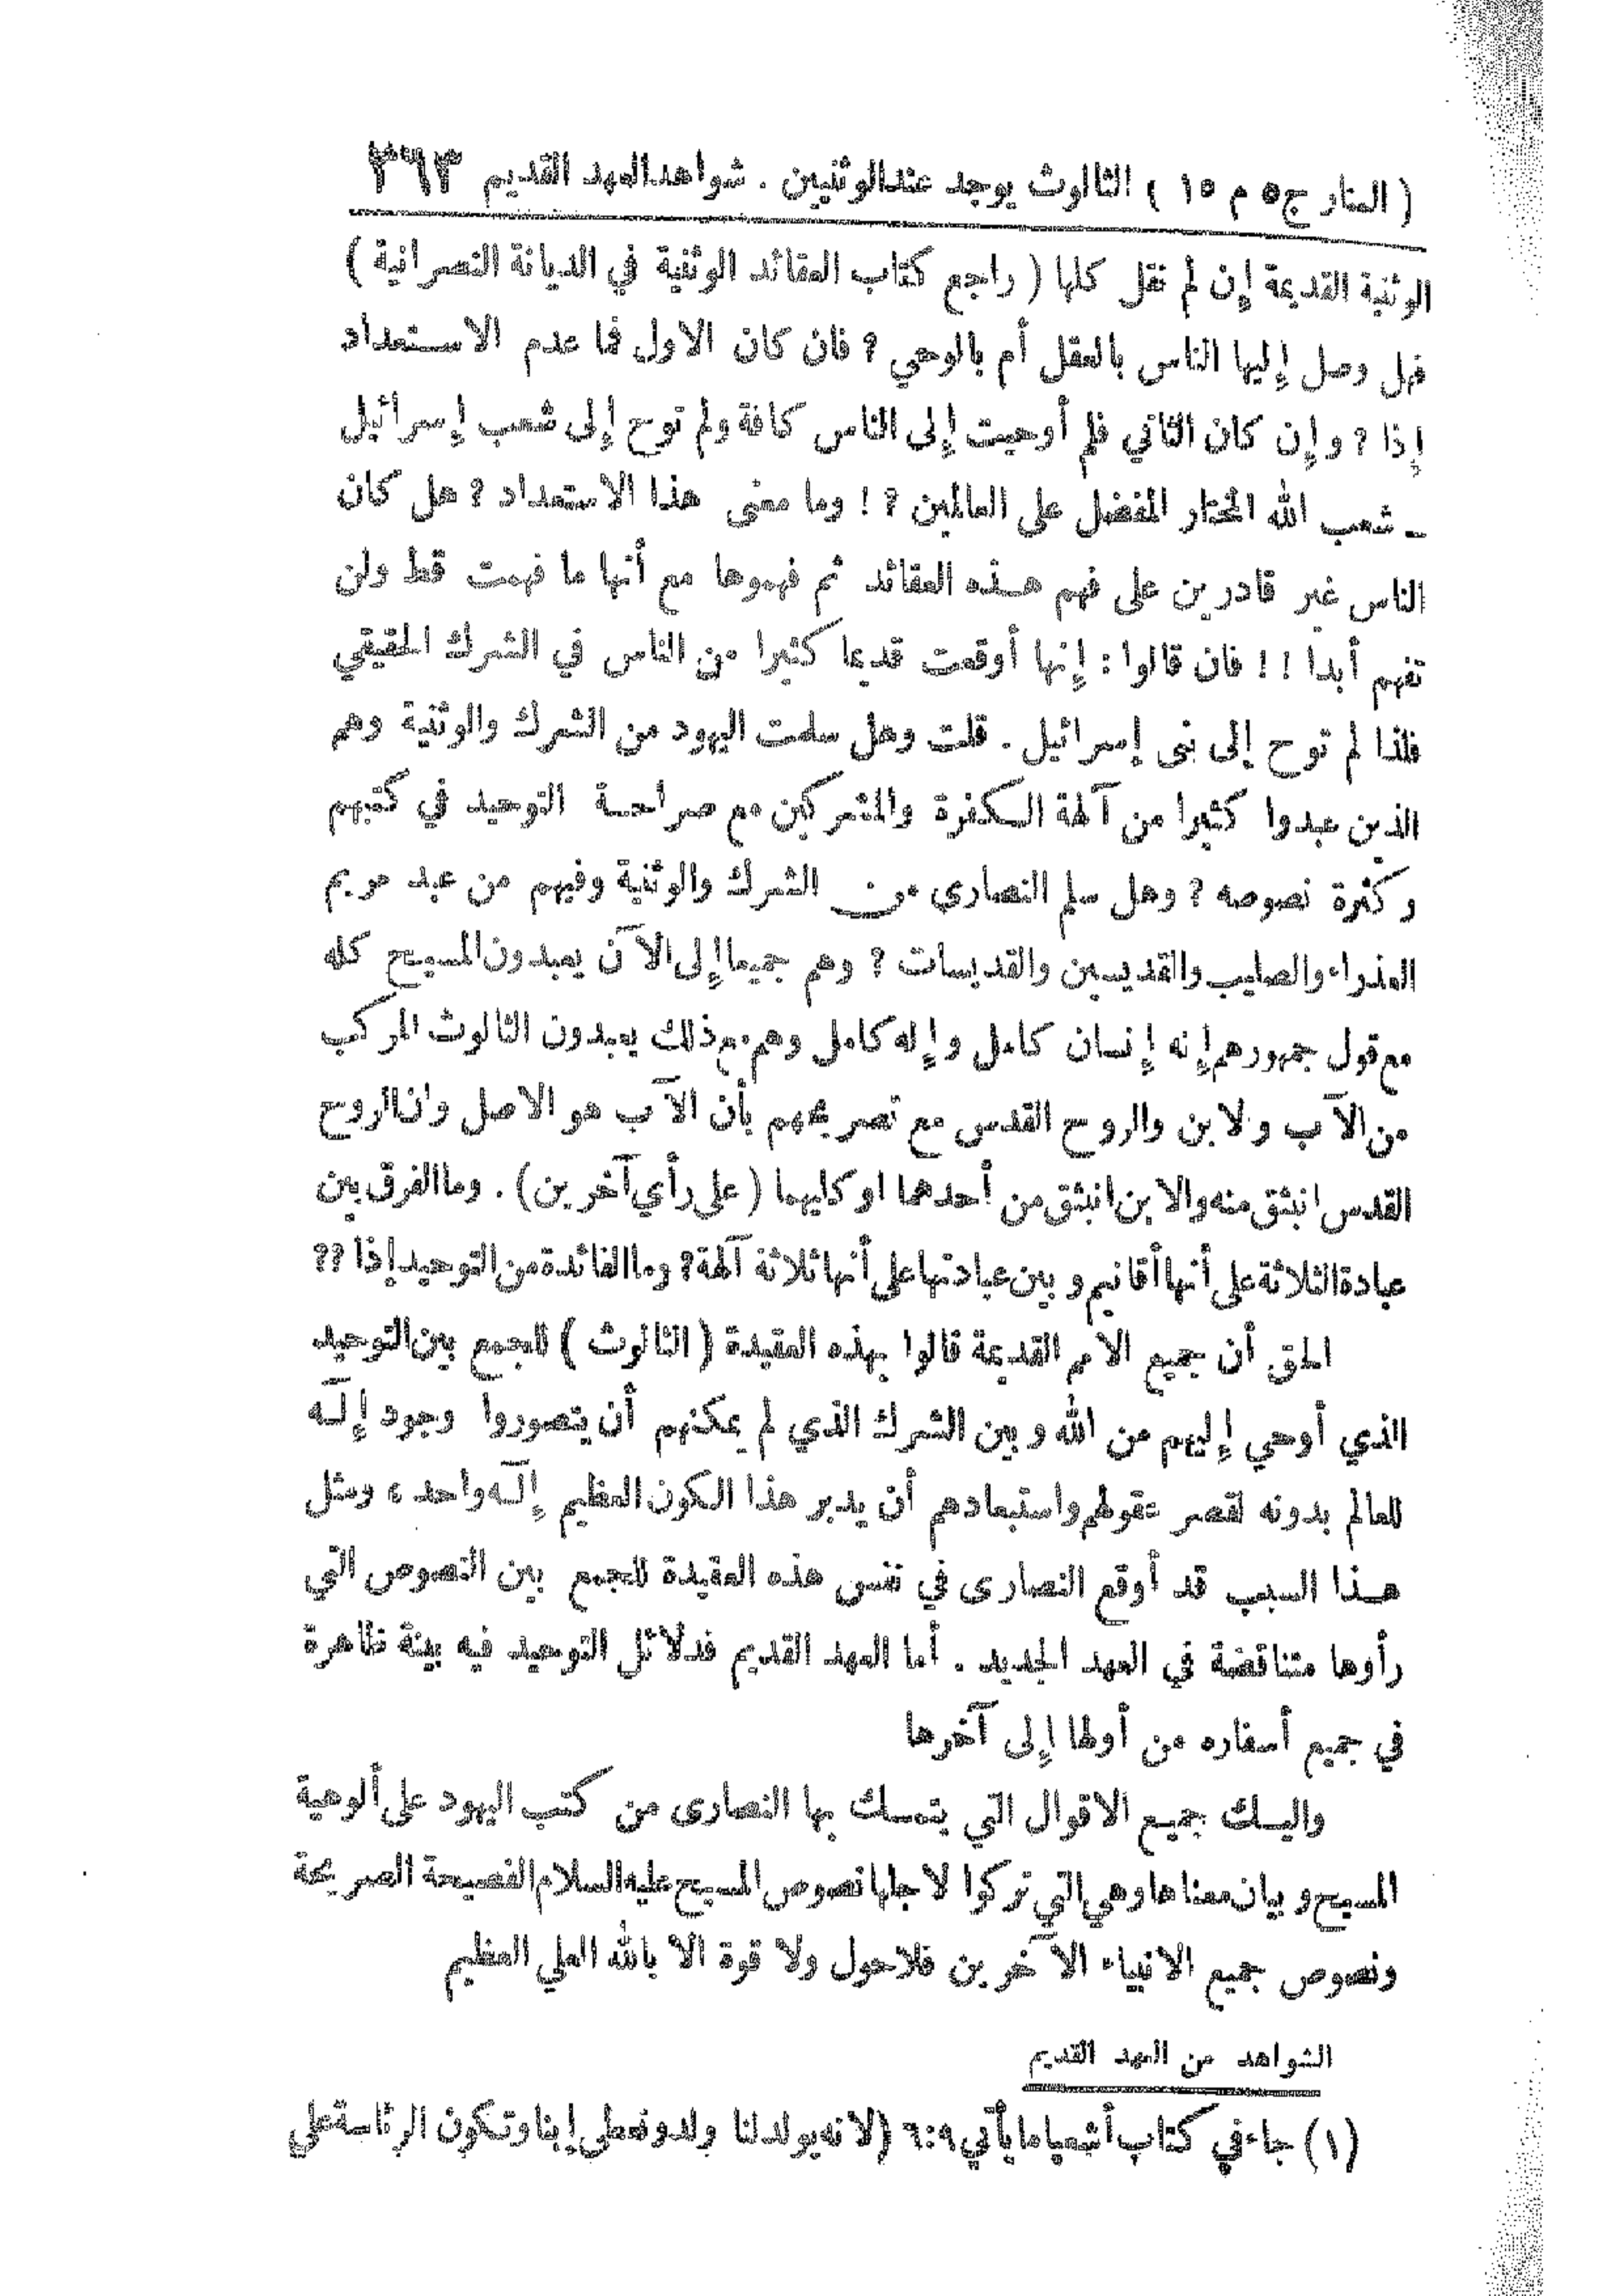 ( المنار ج٥ م ١٥ ) الثالوث يوجد عند الوثنيين . شواهد العهد القديم ٣٦٣
الوثنية القديمة إن لم نقل كلها ( راجع كتاب العقائد الوثنية في الديانة النصرانية )
فهل وصل إليها الناس بالعقل أم بالوحي ? فان كان الاول فما عدم الاستعداد
إذا ? وإن كان الثاني فلم أوحيت إلى الناس كافة ولم توح إلى شعب إسرائيل
ـ شعب الله المختار المفضل على العالمين ? ! وما معنى هذا الاستعداد ? هل كان
الناس غير قادرين على فهم هذه العقائد ثم فهموها مع أنها ما فهمت قط ولن
تفهم أبداً ! ! فان قالوا : إنها أوقعت قديما كثيرا من الناس في الشرك الحقيقي
فلذا لم توح إلى بنى إسرائيل . قلت وهل سلمت اليهود من الشرك والوثنية وهم
الذين عبدوا كثيرا من آلهة الكفرة والمشركين مع صراحة التوحيد في كتبهم
وكثرة نصوصه ? وهل سلم النصارى من الشرك والوثنية وفيهم من عبد مريم
العذراء والصليب والقديسين والقديسات ? وهم جميعا إلى الآن يعبدون المسيح كله
مع قول جمهورهم إنه إنسان كامل وإله كامل وهم مع ذلك يعبدون الثالوث المركب
من الآب والابن والروح القدس مع تصريحهم بأن الآب هو الاصل وان الروح
القدس انبثق منه والابن انبثق من أحدهما او كليهما ( على رأي آخرين ) . وما الفرق بين
عبادة الثلاثة على أنها أقانيم وبين عبادتها على أنها ثلاثة آلهة ? وما الفائدة من التوحيد إذاً ??
الحق أن جميع الامم القديمة قالوا بهذه العقيدة ( الثالوث ) للجمع بين التوحيد
الذي أوحي إليهم من الله وبين الشرك الذي لم يمكنهم أن يتصوروا وجود إله
للعالم بدونه لقصر عقولهم واستبعادهم أن يدبر هذا الكون العظيم إله واحد ، ومثل
هذا السبب قد أوقع النصارى في نفس هذه العقيدة للجمع بين النصوص التي
رأوها متناقضة في العهد الجديد . أما العهد القديم فدلائل التوحيد فيه بينة ظاهرة
في جميع أسفاره من أولها إلى آخرها
واليك جميع الاقوال التي يتمسك بها النصارى من كتب اليهود على ألوهية
المسيح وبيان معناها وهي التي تركوا لاجلها نصوص المسيح عليه السلام الفصيحة الصريحة
ونصوص جميع الانبياء الآخرين فلا حول ولا قوة الا بالله العلي العظيم
الشواهد من العهد القديم
(١) جاء في كتاب أشعيا ما يأتي ٩:٦ (لانه يولد لنا ولد ونعطى إبنا وتكون الرئاسة على